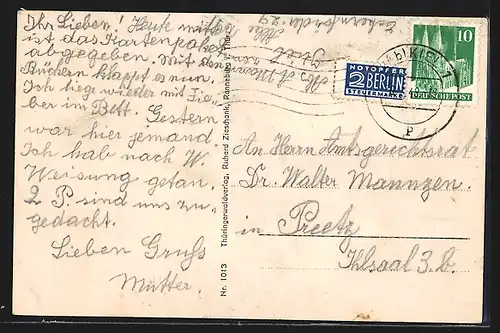 Ihr Lieben! Heute mittag
ist das Kartenpaket
abgegeben. Mit den
Büchern klappt es nun.
Ich liege wieder mit Fie-
ber im Bett. Gestern
war hier jemand.
Ich hab nach W.
Weisung getan.
2 P. sind uns zu-
gedacht.
Lieben Gruss
Mutter.
Nr. 1013 Thüringerwaldverlag, Richard Zieschank, Ronneburg i. Thür.
NOTOPFER
2 BERLIN
STEUERMARKE
10
DEUTSCHE POST
KIEL 1
P
An Herrn Amtsgerichtsrat
Dr. Walter Mannzen
in Preetz
Ihlsaal 3. b.